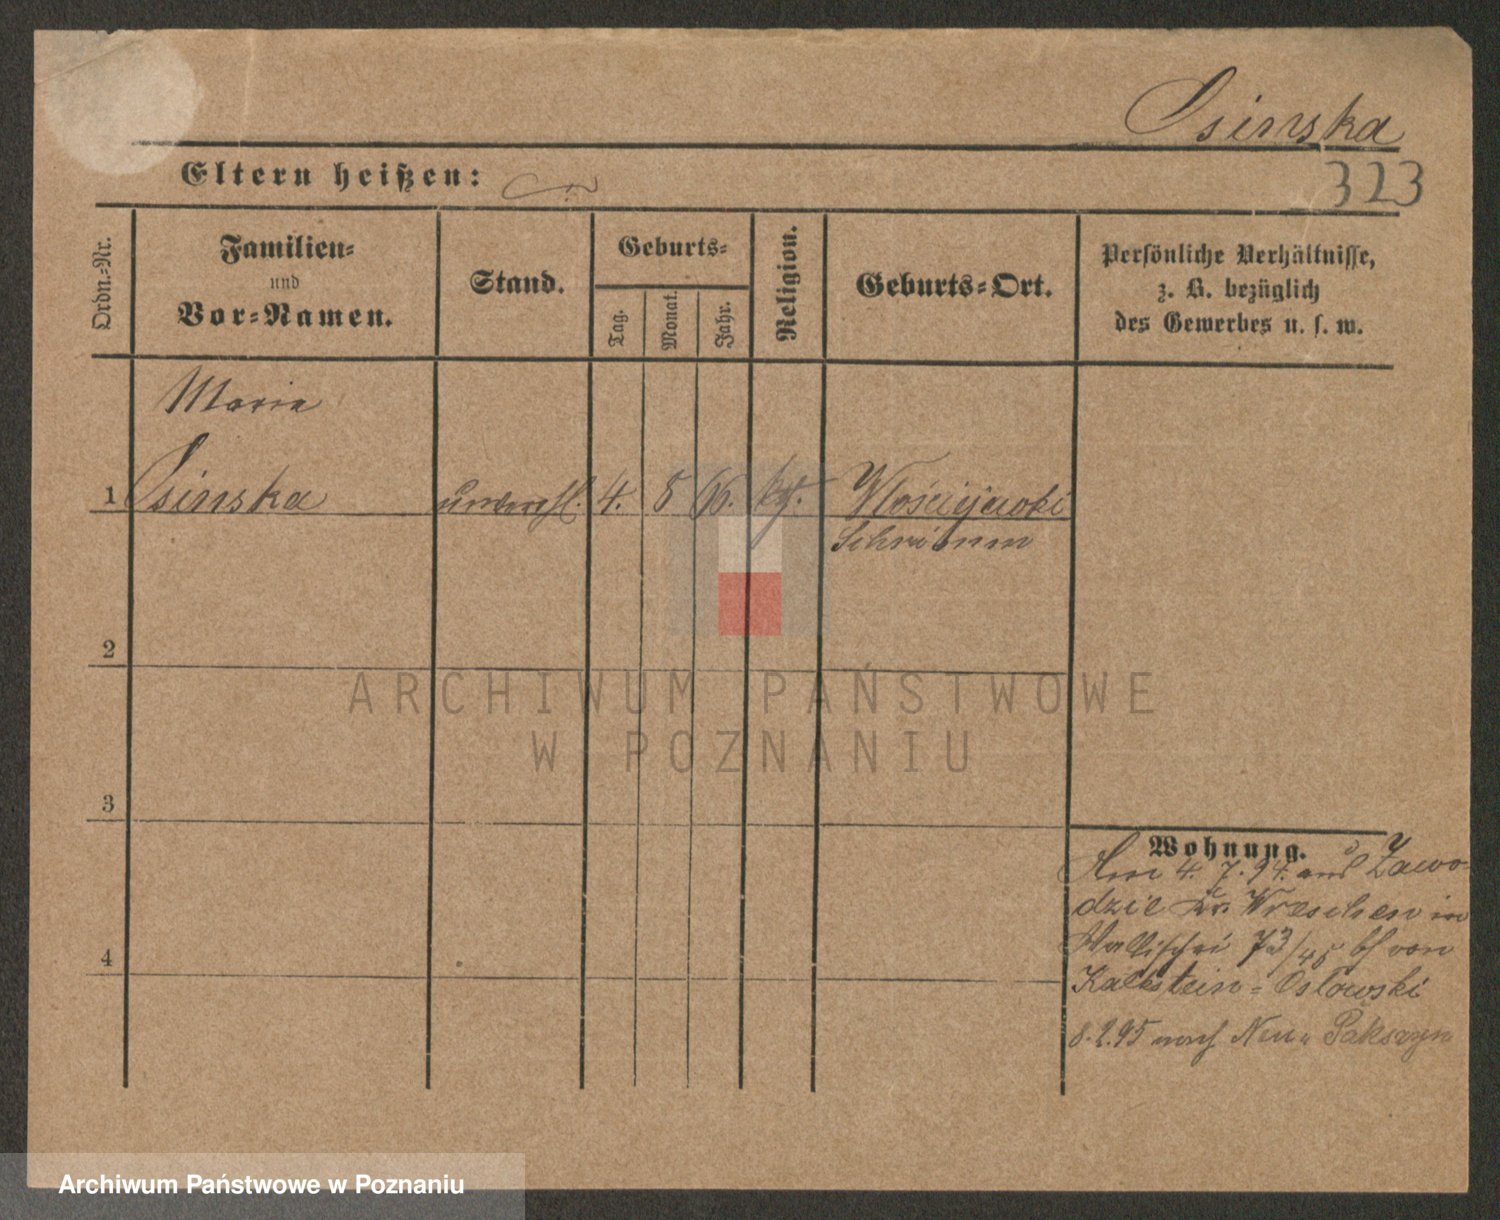 Osinska
Eltern heißen:
323
Ordn.-Nr.
Familien-
und
Vor-Namen.
Stand.
Geburts-
Tag.
Monat.
Jahr.
Religion.
Geburts-Ort.
Persönliche Verhältnisse,
z. B. bezüglich
des Gewerbes u. s. w.
Maria
1 Osinska unverehl. 4. 8 66. kath. Włościejewki
Schrimm
2
ARCHIWUM PAŃSTWOWE
W POZNANIU
3
Wohnung.
Am 4. 7. 94. aus Zawo-
dzie Kr. Wreschen in
Wallischei 73/45 bei von
Kalkstein-Oslowski
4
8.2.95 nach Neu-Paksczyn
Archiwum Państwowe w Poznaniu